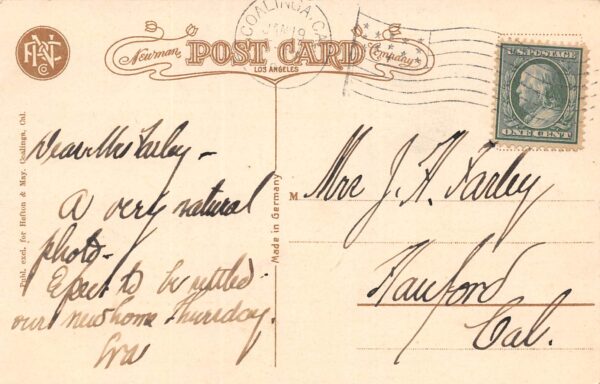 COALINGA, CAL.
JAN 19
Newman POST CARD Company
LOS ANGELES
U.S. POSTAGE
ONE CENT
Publ. excl. for Hefton & May, Coalinga, Cal.
Made in Germany
Dear Mrs Farley –
A very natural
photo –
Expect to be settled
our new home Thursday.
Eva
M
Mrs J. H. Farley
Hanford
Cal.